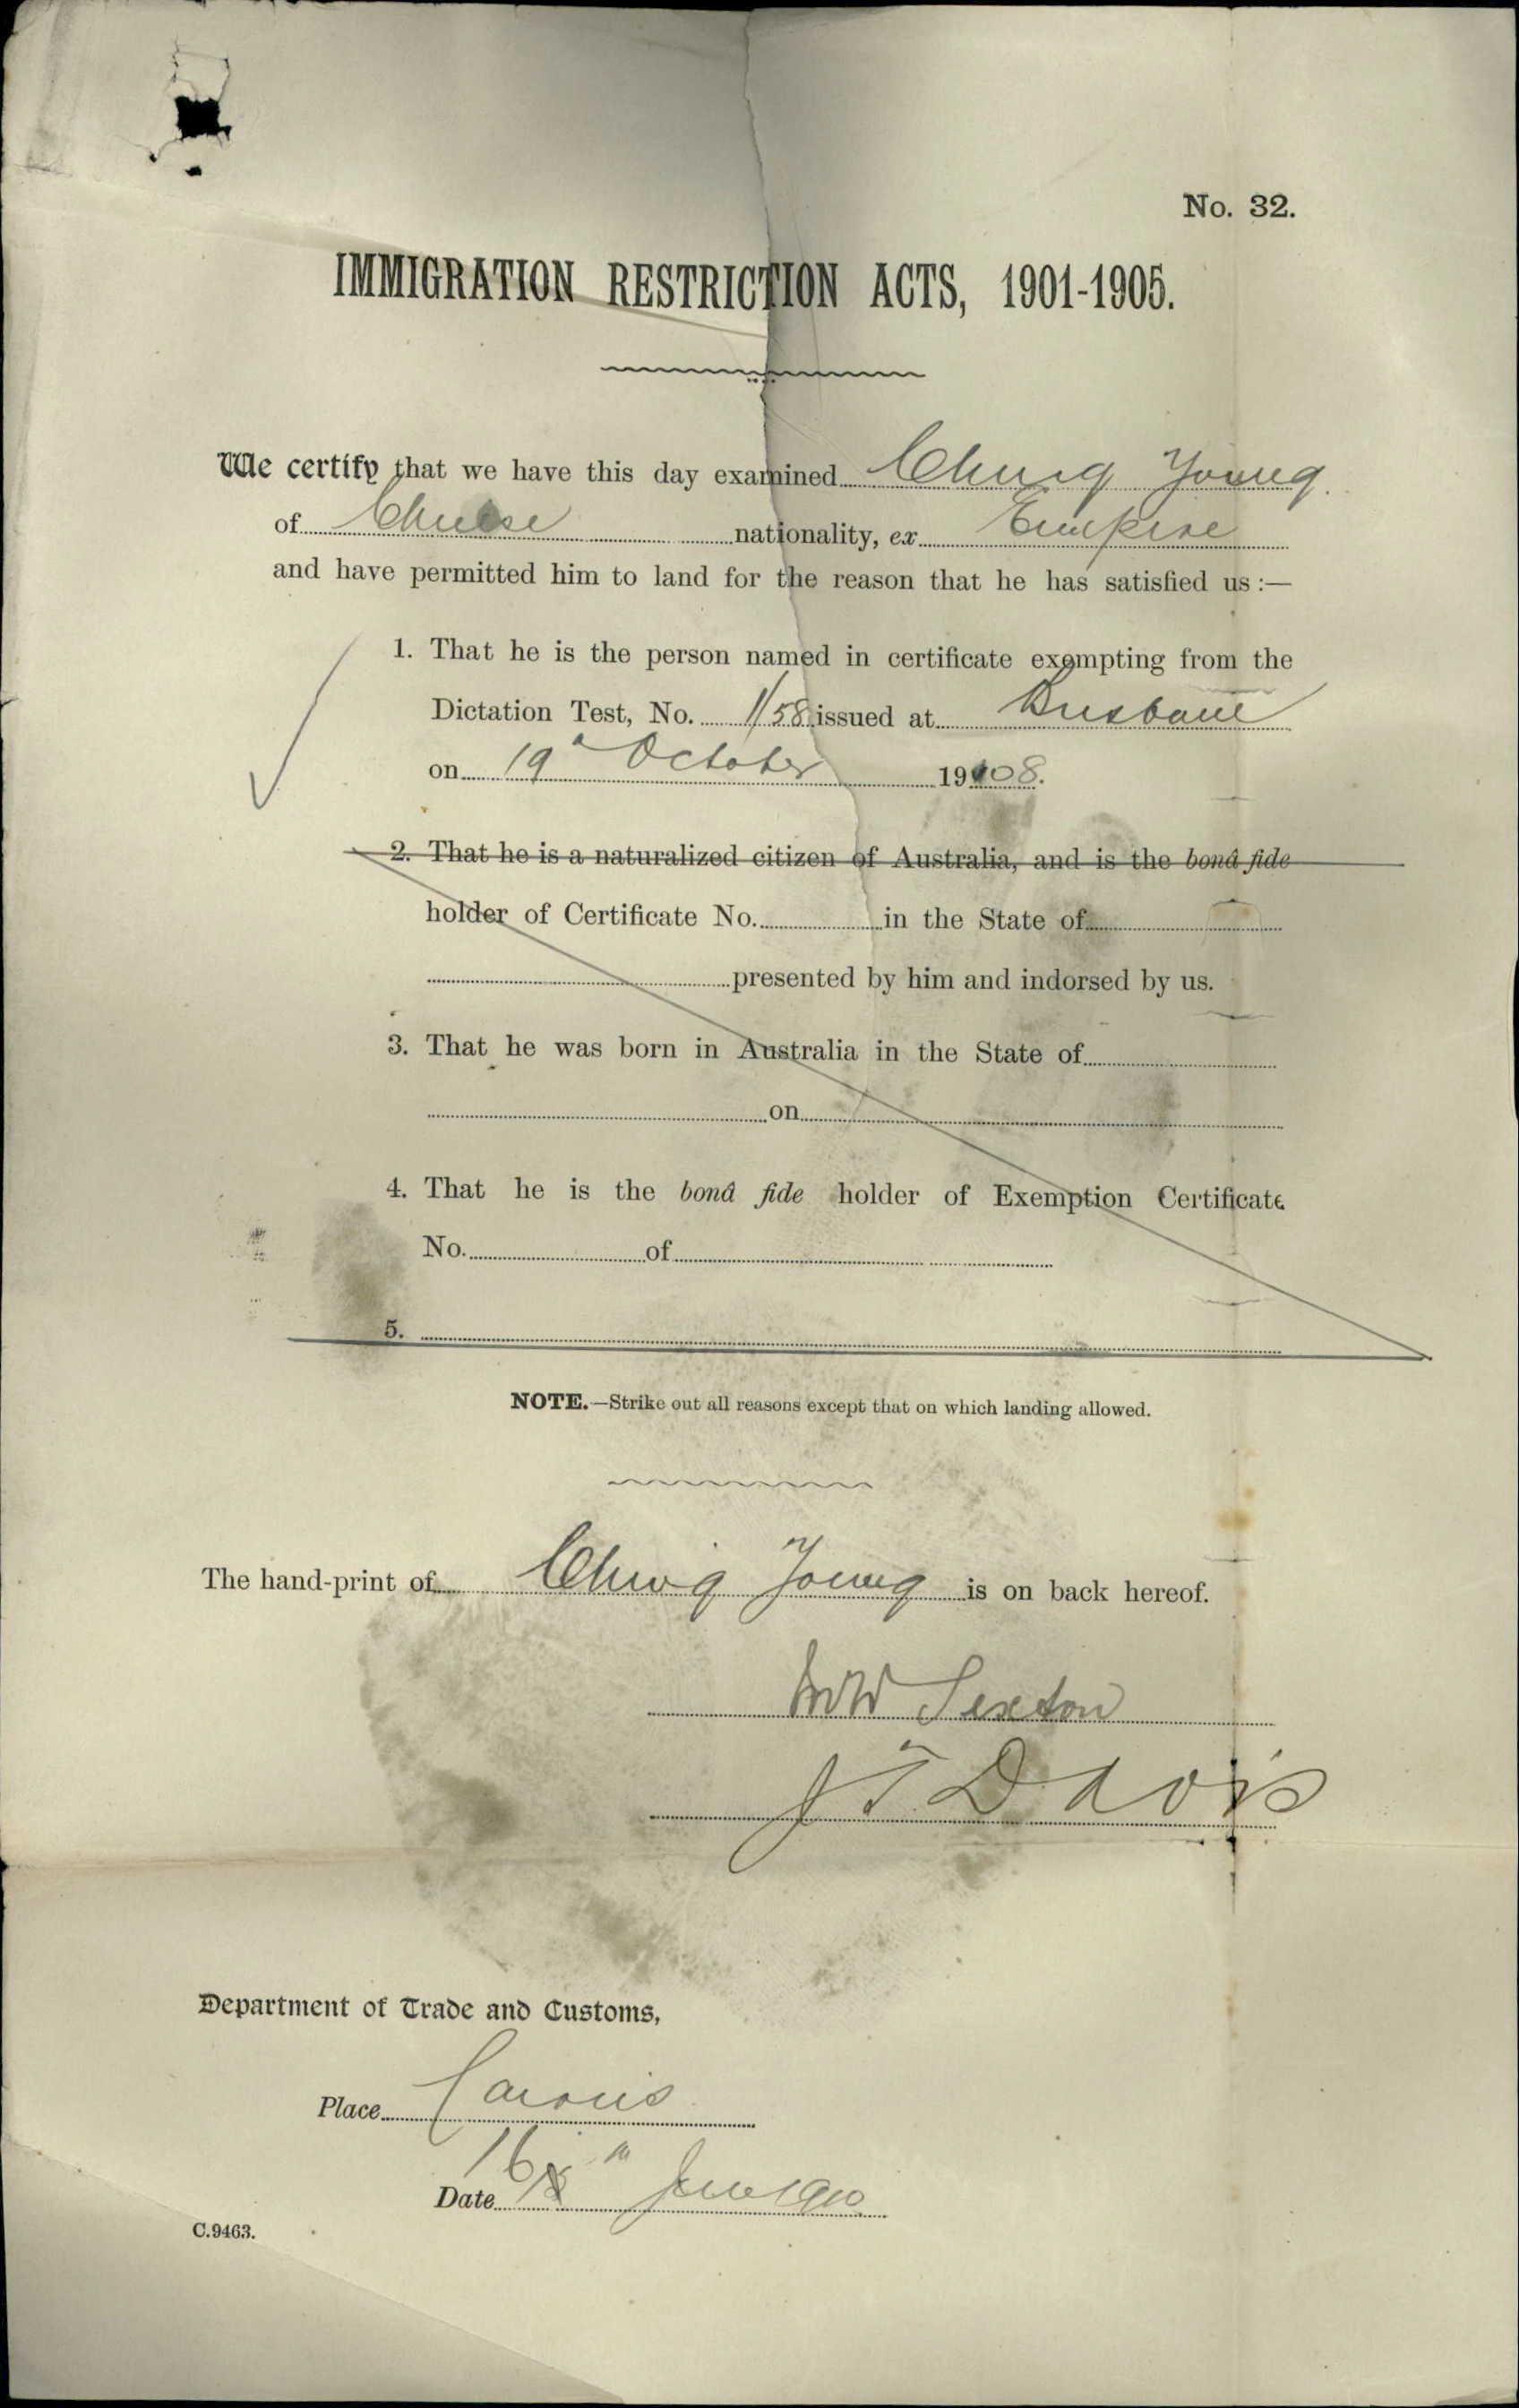 No. 32.
IMMIGRATION RESTRICTION ACTS, 1901-1905.
We certify that we have this day examined Chung Young.
of Chinese nationality, ex Empire
and have permitted him to land for the reason that he has satisfied us :—
1. That he is the person named in certificate exempting from the
Dictation Test, No. 1/58 issued at Brisbane
on 19 October 1908.
2. That he is a naturalized citizen of Australia, and is the bonâ fide
holder of Certificate No. in the State of
presented by him and indorsed by us.
3. That he was born in Australia in the State of
on
4. That he is the bonâ fide holder of Exemption Certificate
No. of
5.
NOTE.—Strike out all reasons except that on which landing allowed.
The hand-print of Chung Young is on back hereof.
Sexton
J T Davis
Department of Trade and Customs,
Place Cairns
Date 16th June 1910
C.9463.